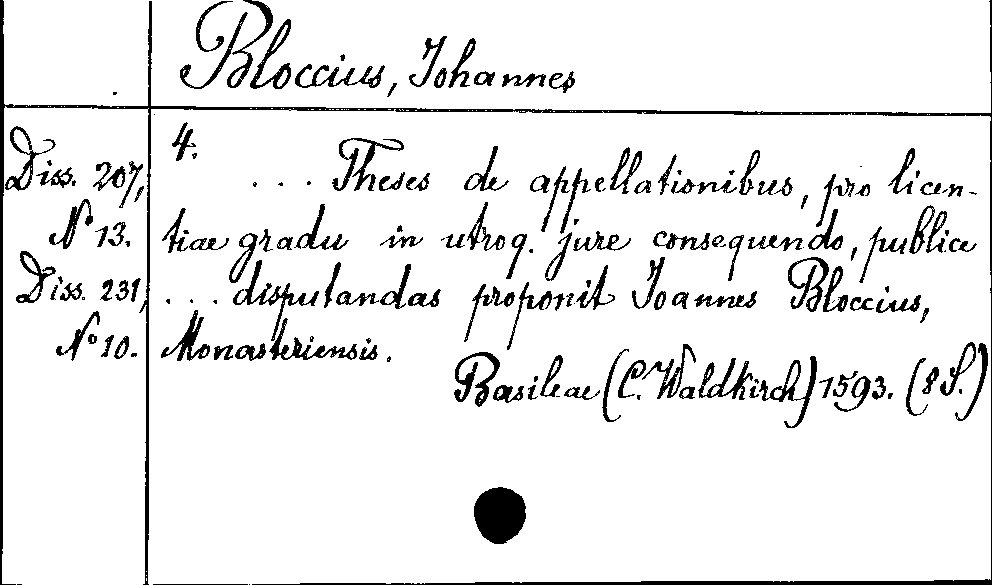 Bloccius, Johannes
Diss. 207,
No 13.
Diss. 231,
No 10.
4.
... Theses de appellationibus, pro licen-
tiae gradu in utroq. jure consequendo, publice
... disputandas proponit Joannes Bloccius,
Monasteriensis.
Basileae (C. Waldkirch) 1593. (8 S.)